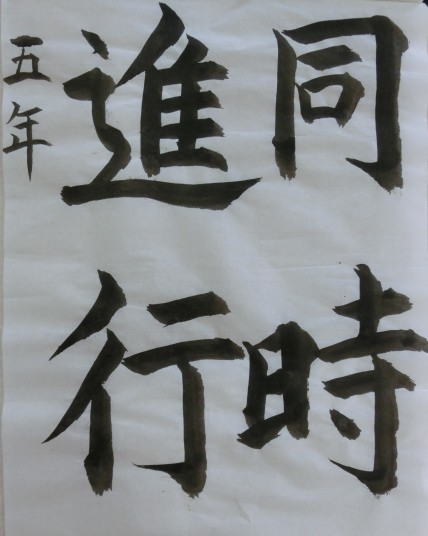 同時
進行
五年